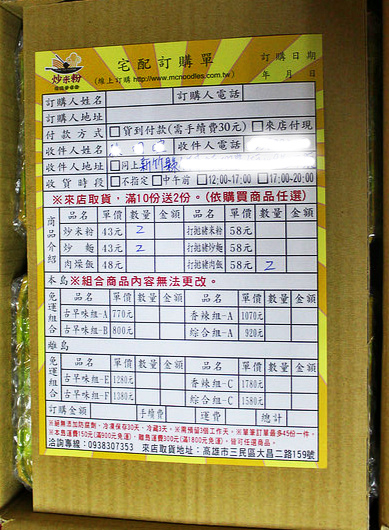 炒米粉
宅配訂購單
訂購日期
(線上訂購http://www.mcnoodles.com.tw)
年 月 日
訂購人姓名 訂購人電話
訂購人地址
付款方式 □貨到付款(需手續費30元) □來店付現
收件人姓名 收件人電話
收件人地址 □同上 新竹縣
收貨時段 □不指定 □中午前 □12:00-17:00 □17:00-20:00
※來店取貨，滿10份送2份。(依購買商品任選)
商品介紹 品名 單價 數量 金額 品名 單價 數量 金額
炒米粉 43元 2 打拋豬米粉 58元
炒麵 43元 2 打拋豬炒麵 58元
肉燥飯 48元 打拋豬肉飯 58元 2
本島※組合商品內容無法更改。
免運組合 品名 單價 數量 金額 品名 單價 數量 金額
古早味組-A 770元 香辣組-A 1070元
古早味組-B 800元 綜合組-A 920元
離島
免運組合 品名 單價 數量 金額 品名 單價 數量 金額
古早味組-E 1280元 香辣組-C 1780元
古早味組-F 1380元 綜合組-C 1580元
訂購金額 手續費 運費 總計
※絕無添加防腐劑，冷凍保存30天，冷藏3天。※需預留3個工作天。※單筆訂單最多45份一件。
※本島運費150元(滿900元免運)，離島運費300元(滿1800元免運)，皆可任選商品。
洽詢專線：0938307353 來店取貨地址：高雄市三民區大昌二路159號